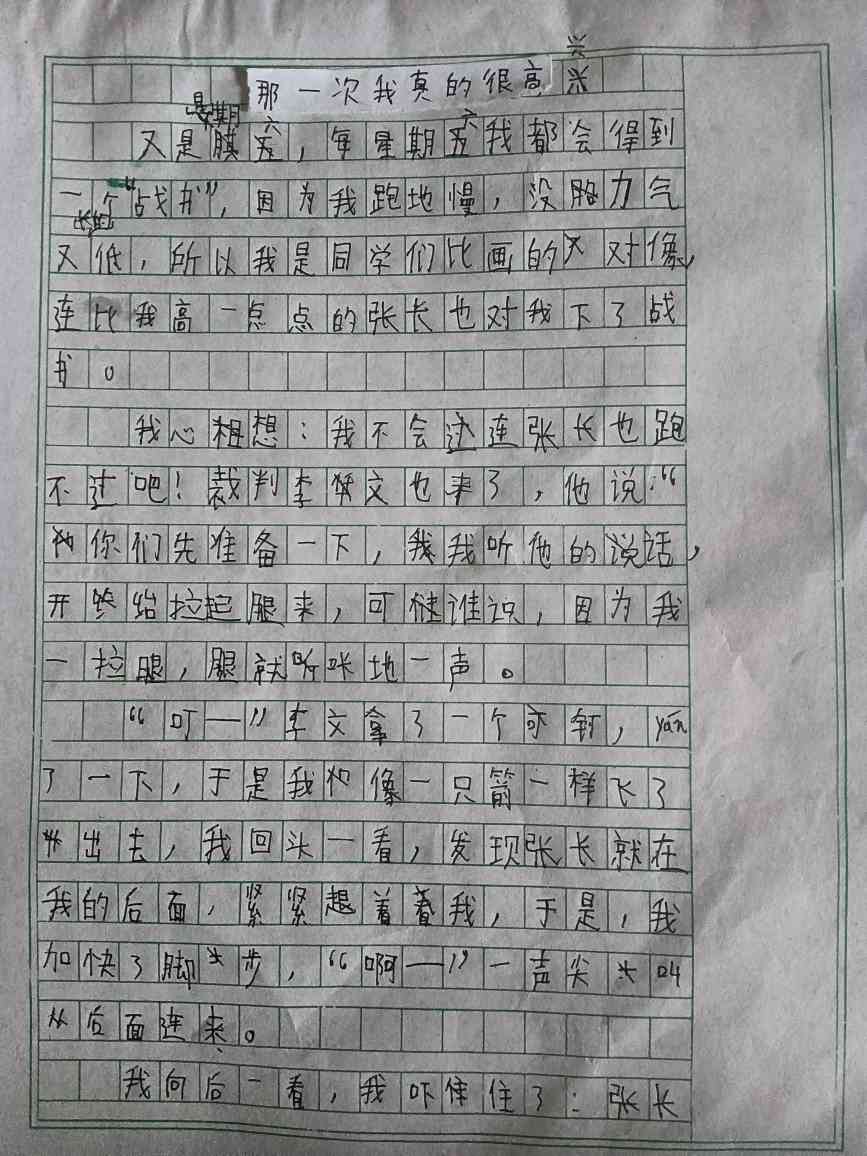 兴
那一次我真的很高兴
星期 六 六
又是 五，每星期五我都会得到
一个“战书”，因为我跑地慢，没 力气
又低，所以我是同学们比画的 对像，
连比我高一点点的张长也对我下了战
书。
我心想：我不会 连张长也跑
不过吧！裁判李 文也来了，他说：“
你们先准备一下，我听他的说话，
开 始拉起腿来，可 谁识，因为我
一拉腿，腿就 咔地一声。
“叮—”李文拿了一个 钉，yán
了一下，于是我 像一只箭一样飞了
出去，我回头一看，发现张长就在
我的后面，紧紧 着 我，于是，我
加快了脚 步，“啊—”一声尖 叫
从后面连来。
我向后一看，我吓 住了：张长